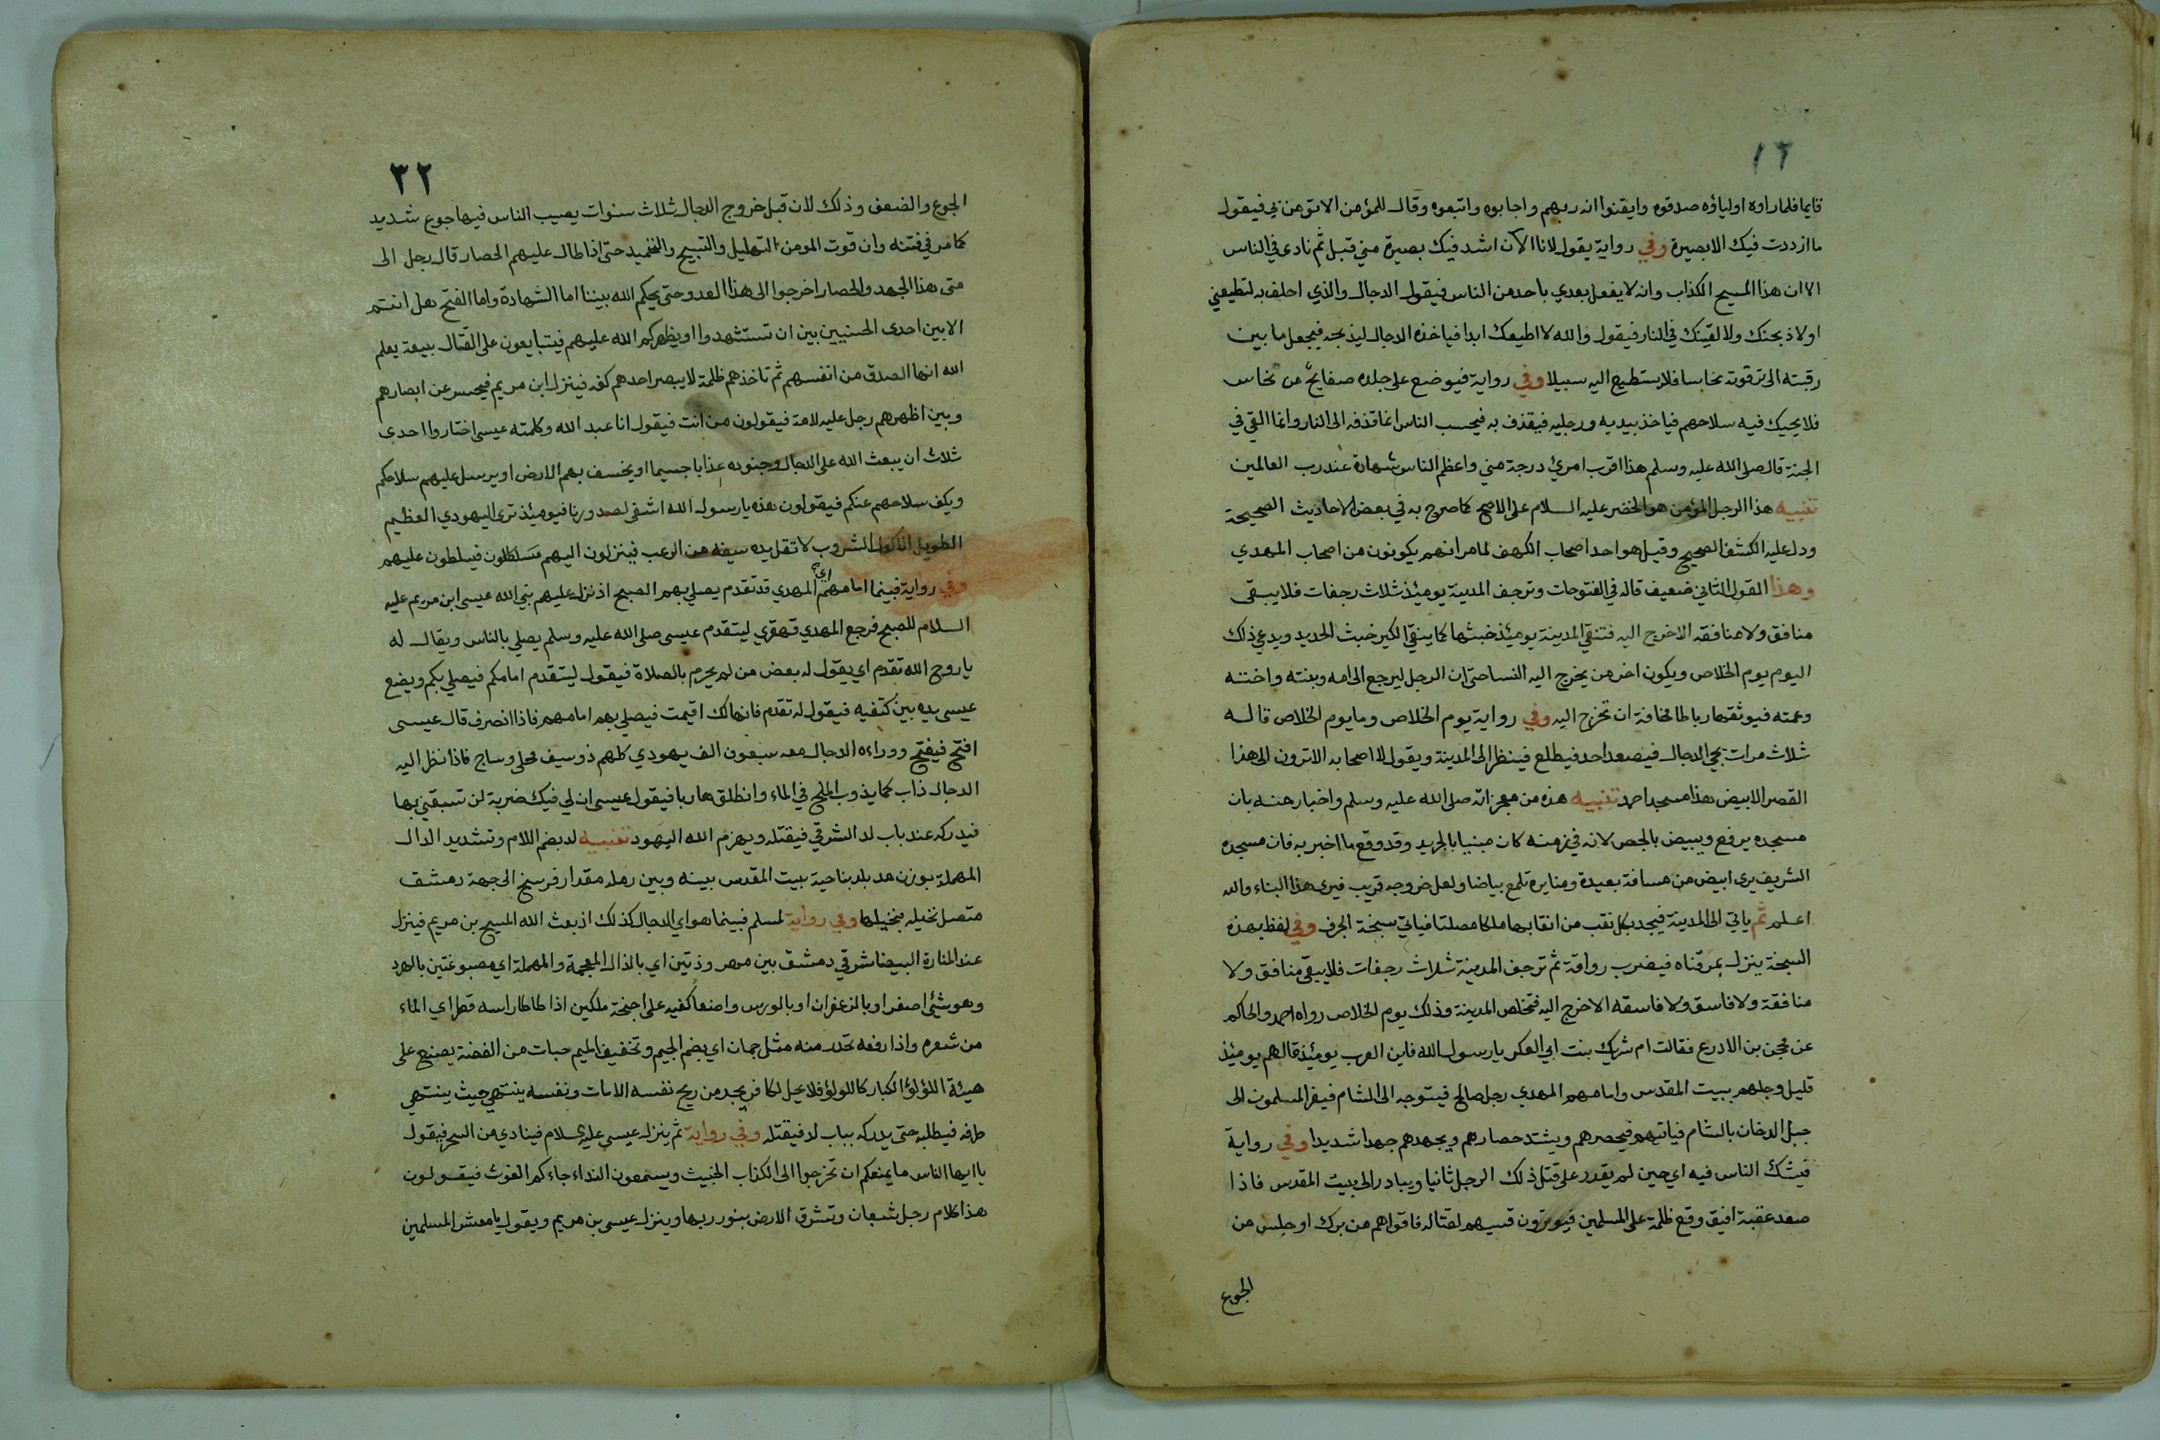 ١٦
قايما فلما راوه اولياؤه صدقوه وايقنوا انه ربهم واجابوه واتبعوه وقال للمؤمن الا تؤمن بي فيقول
ما ازددت فيك الا بصيرة وفي رواية يقول لانا الآن اشد فيك بصيرة مني قبل ثم نادى في الناس
الا ان هذا المسيح الكذاب وانه لا يفعل بعدي باحد من الناس فيقول الدجال والذي احلف به لتطيعني
او لاذبحنك ولالقينك في النار فيقول والله لا اطيعك ابدا فياخذه الدجال ليذبحه فيجعل ما بين
رقبته الى ترقوته نحاسا فلا يستطيع اليه سبيلا وفي رواية فيوضع على جلده صفايح من نحاس
فلا يحيك فيه سلاحهم فياخذ بيديه ورجليه فيقذف به فيحسب الناس انما قذفه الى النار وانما القي في
الجنة قال صلى الله عليه وسلم هذا اقرب امرئ درجة مني واعظم الناس شهادة عند رب العالمين
تنبيه هذا الرجل المؤمن هو الخضر عليه السلام على الاصح كما صرح به في بعض الاحاديث الصحيحة
ودل عليه الكشف الصحيح وقيل هو احد اصحاب الكهف لما مر انهم يكونون من اصحاب المهدي
وهذا القول الثاني ضعيف قاله في الفتوحات وترجف المدينة يومئذ ثلاث رجفات فلا يبقى
منافق ولا منافقه الا خرج اليه فتنقي المدينة يومئذ خبثها كما ينقي الكير خبث الحديد ويدعى ذلك
اليوم يوم الخلاص ويكون اخر من يخرج اليه النسا حتى ان الرجل ليرجع الى امه وبنته واخته
وعمته فيوثقها رباطا مخافة ان تخرج اليه وفي رواية يوم الخلاص وما يوم الخلاص قاله
ثلاث مرات يجي الدجال فيصعد احد فيطلع فينظر الى المدينة ويقول لاصحابه الا ترون الى هذا
القصر الابيض هذا مسجد احمد تنبيه هذه من معجزاته صلى الله عليه وسلم واخبار منه بان
مسجده يرفع ويبيض بالجص لانه في زمنه كان مبنيا بالجريد وقد وقع ما اخبر به فان مسجده
الشريف يرى ابيض من مسافة بعيدة ومنايره تلمع بياضا ولعل خروجه قريب فيرى هذا البناء والله
اعلم ثم ياتي الى المدينة فيجد بكل نقب من انقابها ملكا مصلتا فياتي سبخة الجرف وفي لفظ بهذه
السبخة ينزل بمرقناه فيضرب رواقة ثم ترجف المدينة ثلاث رجفات فلا يبقى منافق ولا
منافقة ولا فاسق ولا فاسقه الا خرج اليه فتخلص المدينة وذلك يوم الخلاص رواه احمد والحاكم
عن محجن بن الادرع فقالت ام شريك بنت ابي العكر يا رسول الله فاين العرب يومئذ قال هم يومئذ
قليل وجلهم ببيت المقدس وامامهم المهدي رجل صالح فيتوجه الى الشام فيفر المسلمون الى
جبل الدخان بالشام فياتيهم فيحصرهم ويشتد حصارهم ويجهدهم جهدا شديدا وفي رواية
فيشك الناس فيه اي حين لم يقدر على قتل ذلك الرجل ثانيا ويبادر الى بيت المقدس فاذا
صعد عقبة افيق وقع ظلمة على المسلمين فيوترون قسيهم لقتاله فاقواهم من برك او جلس من
الجوع
٣٢
الجوع والضعف وذلك لان قبل خروج الدجال ثلاث سنوات يصيب الناس فيها جوع شديد
كما مر في فتنه وان قوت المومن التهليل والتسبيح والتحميد حتى اذا طال عليهم الحصار قال رجل الى
متى هذا الجهد والحصار اخرجوا الى هذا العدو حتى يحكم الله بيننا اما الشهادة واما الفتح هل انتم
الا بين احدى الحسنيين بين ان تستشهدوا او يظهركم الله عليهم فيتبايعون على القتال بيعة يعلم
الله انها الصدق من انفسهم ثم تاخذهم ظلمة لا يبصر احدهم كفه فينزل ابن مريم فيحسر عن ابصارهم
وبين اظهرهم رجل عليه لامة فيقولون من انت فيقول انا عبد الله وكلمته عيسى اختاروا احدى
ثلاث ان يبعث الله على الدجال وجنوده عذابا جسيما او يخسف بهم الارض او يرسل عليهم سلاحكم
ويكف سلاحهم عنكم فيقولون هذه يا رسول الله اشفى لصدورنا فيومئذ ترى اليهودي العظيم
الطويل الاكول الشروب لا تقل يده سيفه من الرعب فينزلون اليهم فيسلطون عليهم
وفي رواية فبينما امامهم اي المهدي قد تقدم يصلي بهم الصبح اذ نزل عليهم نبي الله عيسى ابن مريم عليه
السلام للصبح فرجع المهدي قهقرى ليتقدم عيسى صلى الله عليه وسلم يصلي بالناس ويقال له
يا روح الله تقدم اي يقول له بعض من لم يحرم بالصلاة فيقول ليتقدم امامكم فيصلي بكم ويضع
عيسى يده بين كتفيه فيقول له تقدم فانها لك اقيمت فيصلي بهم امامهم فاذا انصرف قال عيسى
افتح فيفتح ووراءه الدجال معه سبعون الف يهودي كلهم ذو سيف محلى وساج فاذا نظر اليه
الدجال ذاب كما يذوب الملح في الماء وانطلق هاربا فيقول عيسى ان لي فيك ضربة لن تسبقني بها
فيدركه عند باب لد الشرقي فيقتله ويهزم الله اليهود تنبيه لد بضم اللام وتشديد الدال
المهملة بوزن مد بلد بناحية بيت المقدس بينه وبين رمله مقدار فرسخ الى جهة دمشق
متصل نخيله بنخيلها وفي رواية لمسلم فبينما هو اي الدجال كذلك اذ بعث الله المسيح بن مريم فينزل
عند المنارة البيضا شرقي دمشق بين مهروذتين اي بالذال المعجمة والمهملة اي مصبوغتين بالهرد
وهو شئ اصفر او بالزعفران او بالورس واضعا كفيه على اجنحة ملكين اذا طاطا راسه قطر اي الماء
من شعره واذا رفعه تحدر منه مثل جمان اي بضم الجيم وتخفيف الميم حبات من الفضة يصنع على
هيئة اللؤلؤ الكبار كاللولؤ فلا يحل لكافر يجد من ريح نفسه الا مات ونفسه ينتهي حيث ينتهي
طرفه فيطلبه حتى يدركه بباب لد فيقتله وفي رواية ثم ينزل عيسى عليه السلام فينادي من السحر فيقول
يا ايها الناس ما يمنعكم ان تخرجوا الى الكذاب الخبيث ويسمعون النداء جاءكم الغوث فيقولون
هذا كلام رجل شبعان وتشرق الارض بنور ربها وينزل عيسى بن مريم ويقول يا معشر المسلمين